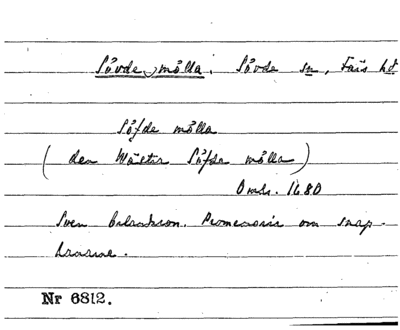 Sövde mölla. Sövde sn, Färs hd
Söfde mölla
(den Wäster Söfde mölla)
Omkr. 1680
Sven Promemoria om snap-
Nr 6812.